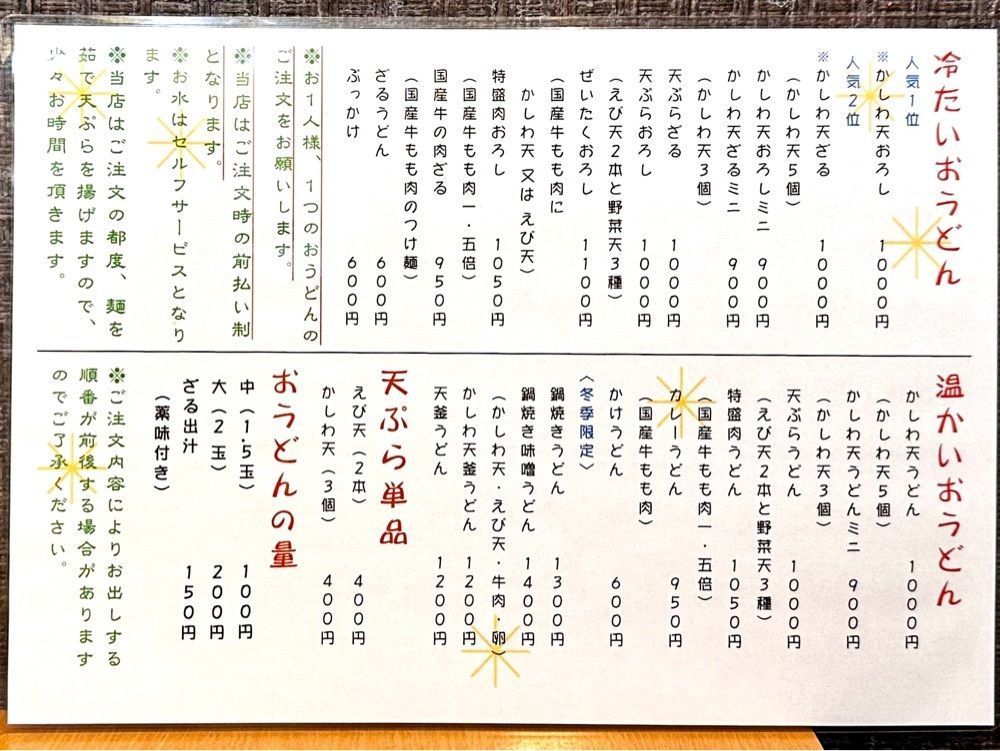 冷たいおうどん
人気1位
※かしわ天おろし 1000円
人気2位
※かしわ天ざる 1000円
（かしわ天5個）
かしわ天おろしミニ 900円
かしわ天ざるミニ 900円
（かしわ天3個）
天ぷらざる 1000円
天ぷらおろし 1000円
（えび天2本と野菜天3種）
ぜいたくおろし 1100円
（国産牛もも肉に
かしわ天 又は えび天）
特盛肉おろし 1050円
（国産牛もも肉一・五倍）
国産牛の肉ざる 950円
（国産牛もも肉のつけ麺）
ざるうどん 600円
ぶっかけ 600円
※お1人様、1つのおうどんの
ご注文をお願いします。
※当店はご注文時の前払い制
となります。
※お水はセルフサービスとなり
ます。
※当店はご注文の都度、麺を
茹で天ぷらを揚げますので、
少々お時間を頂きます。
温かいおうどん
かしわ天うどん 1000円
（かしわ天5個）
かしわ天うどんミニ 900円
（かしわ天3個）
天ぷらうどん 1000円
（えび天2本と野菜天3種）
特盛肉うどん 1050円
（国産牛もも肉一・五倍）
カレーうどん 950円
（国産牛もも肉）
かけうどん 600円
〈冬季限定〉
鍋焼きうどん 1300円
鍋焼き味噌うどん 1400円
（かしわ天・えび天・牛肉・卵）
かしわ天釜うどん 1200円
天釜うどん 1200円
天ぷら単品
えび天（2本） 400円
かしわ天（3個） 400円
おうどんの量
中（1.5玉） 100円
大（2玉） 200円
ざる出汁 150円
（薬味付き）
※ご注文内容によりお出しする
順番が前後する場合があります
のでご了承ください。